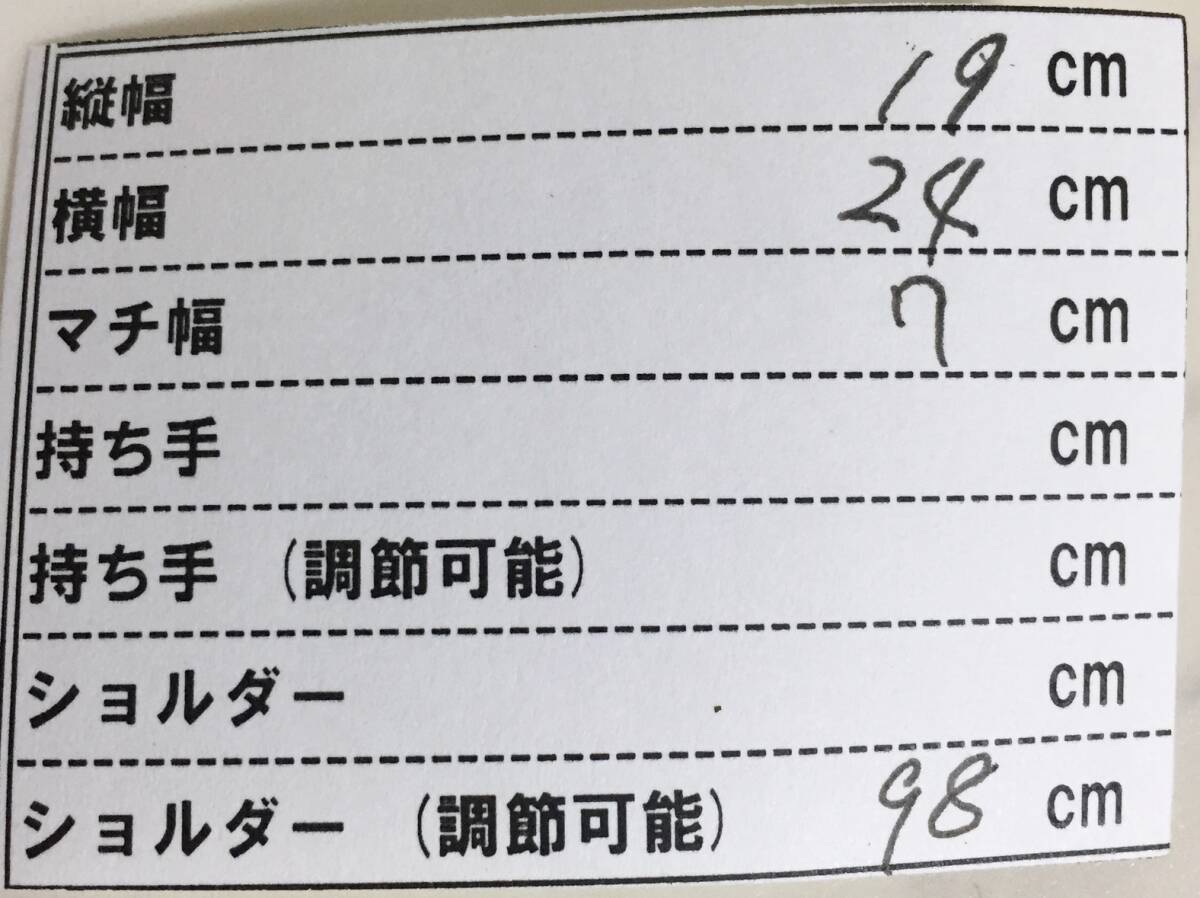 縦幅 19 cm
横幅 24 cm
マチ幅 7 cm
持ち手 cm
持ち手 (調節可能) cm
ショルダー cm
ショルダー (調節可能) 98 cm